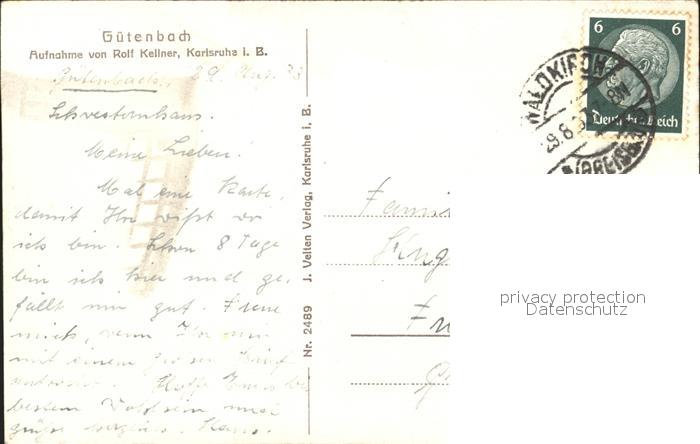 Gütenbach
Aufnahme von Rolf Kellner, Karlsruhe i. B.
Gütenbach, 29. Aug. 38
Schwesternhaus.
Meine Lieben!
Mal eine Karte,
damit Ihr wißt wo
ich bin. Schon 8 Tage
bin ich hier und ge-
fällt mir gut. Freue
mich, wenn Ihr mir
mit einem
Hoffe
bestem Wohlsein und
grüße
J. Velten Verlag, Karlsruhe i. B.
Nr. 2489
6 6
Deutsches Reich
WALDKIRCH
(BREISG
Fami
Fr
privacy protection
Datenschutz